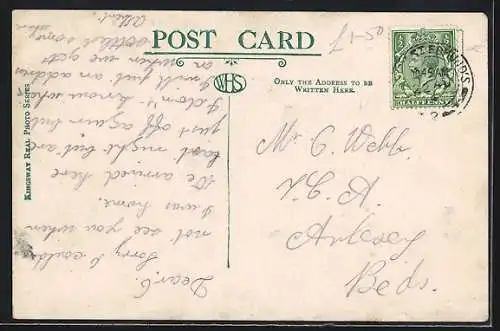 POST CARD
WHS
ONLY THE ADDRESS TO BE
WRITTEN HERE.
KINGSWAY REAL PHOTO SERIES
HALFPENNY
1-50
Mr C. Webb.
Arlesey
Beds.
Dear C.
Sorry I could
not see you when
I was home.
We arrived here
last night but are
just off again but
I don't know where
I will put an address
on when we get
settled some
where.
Albert.